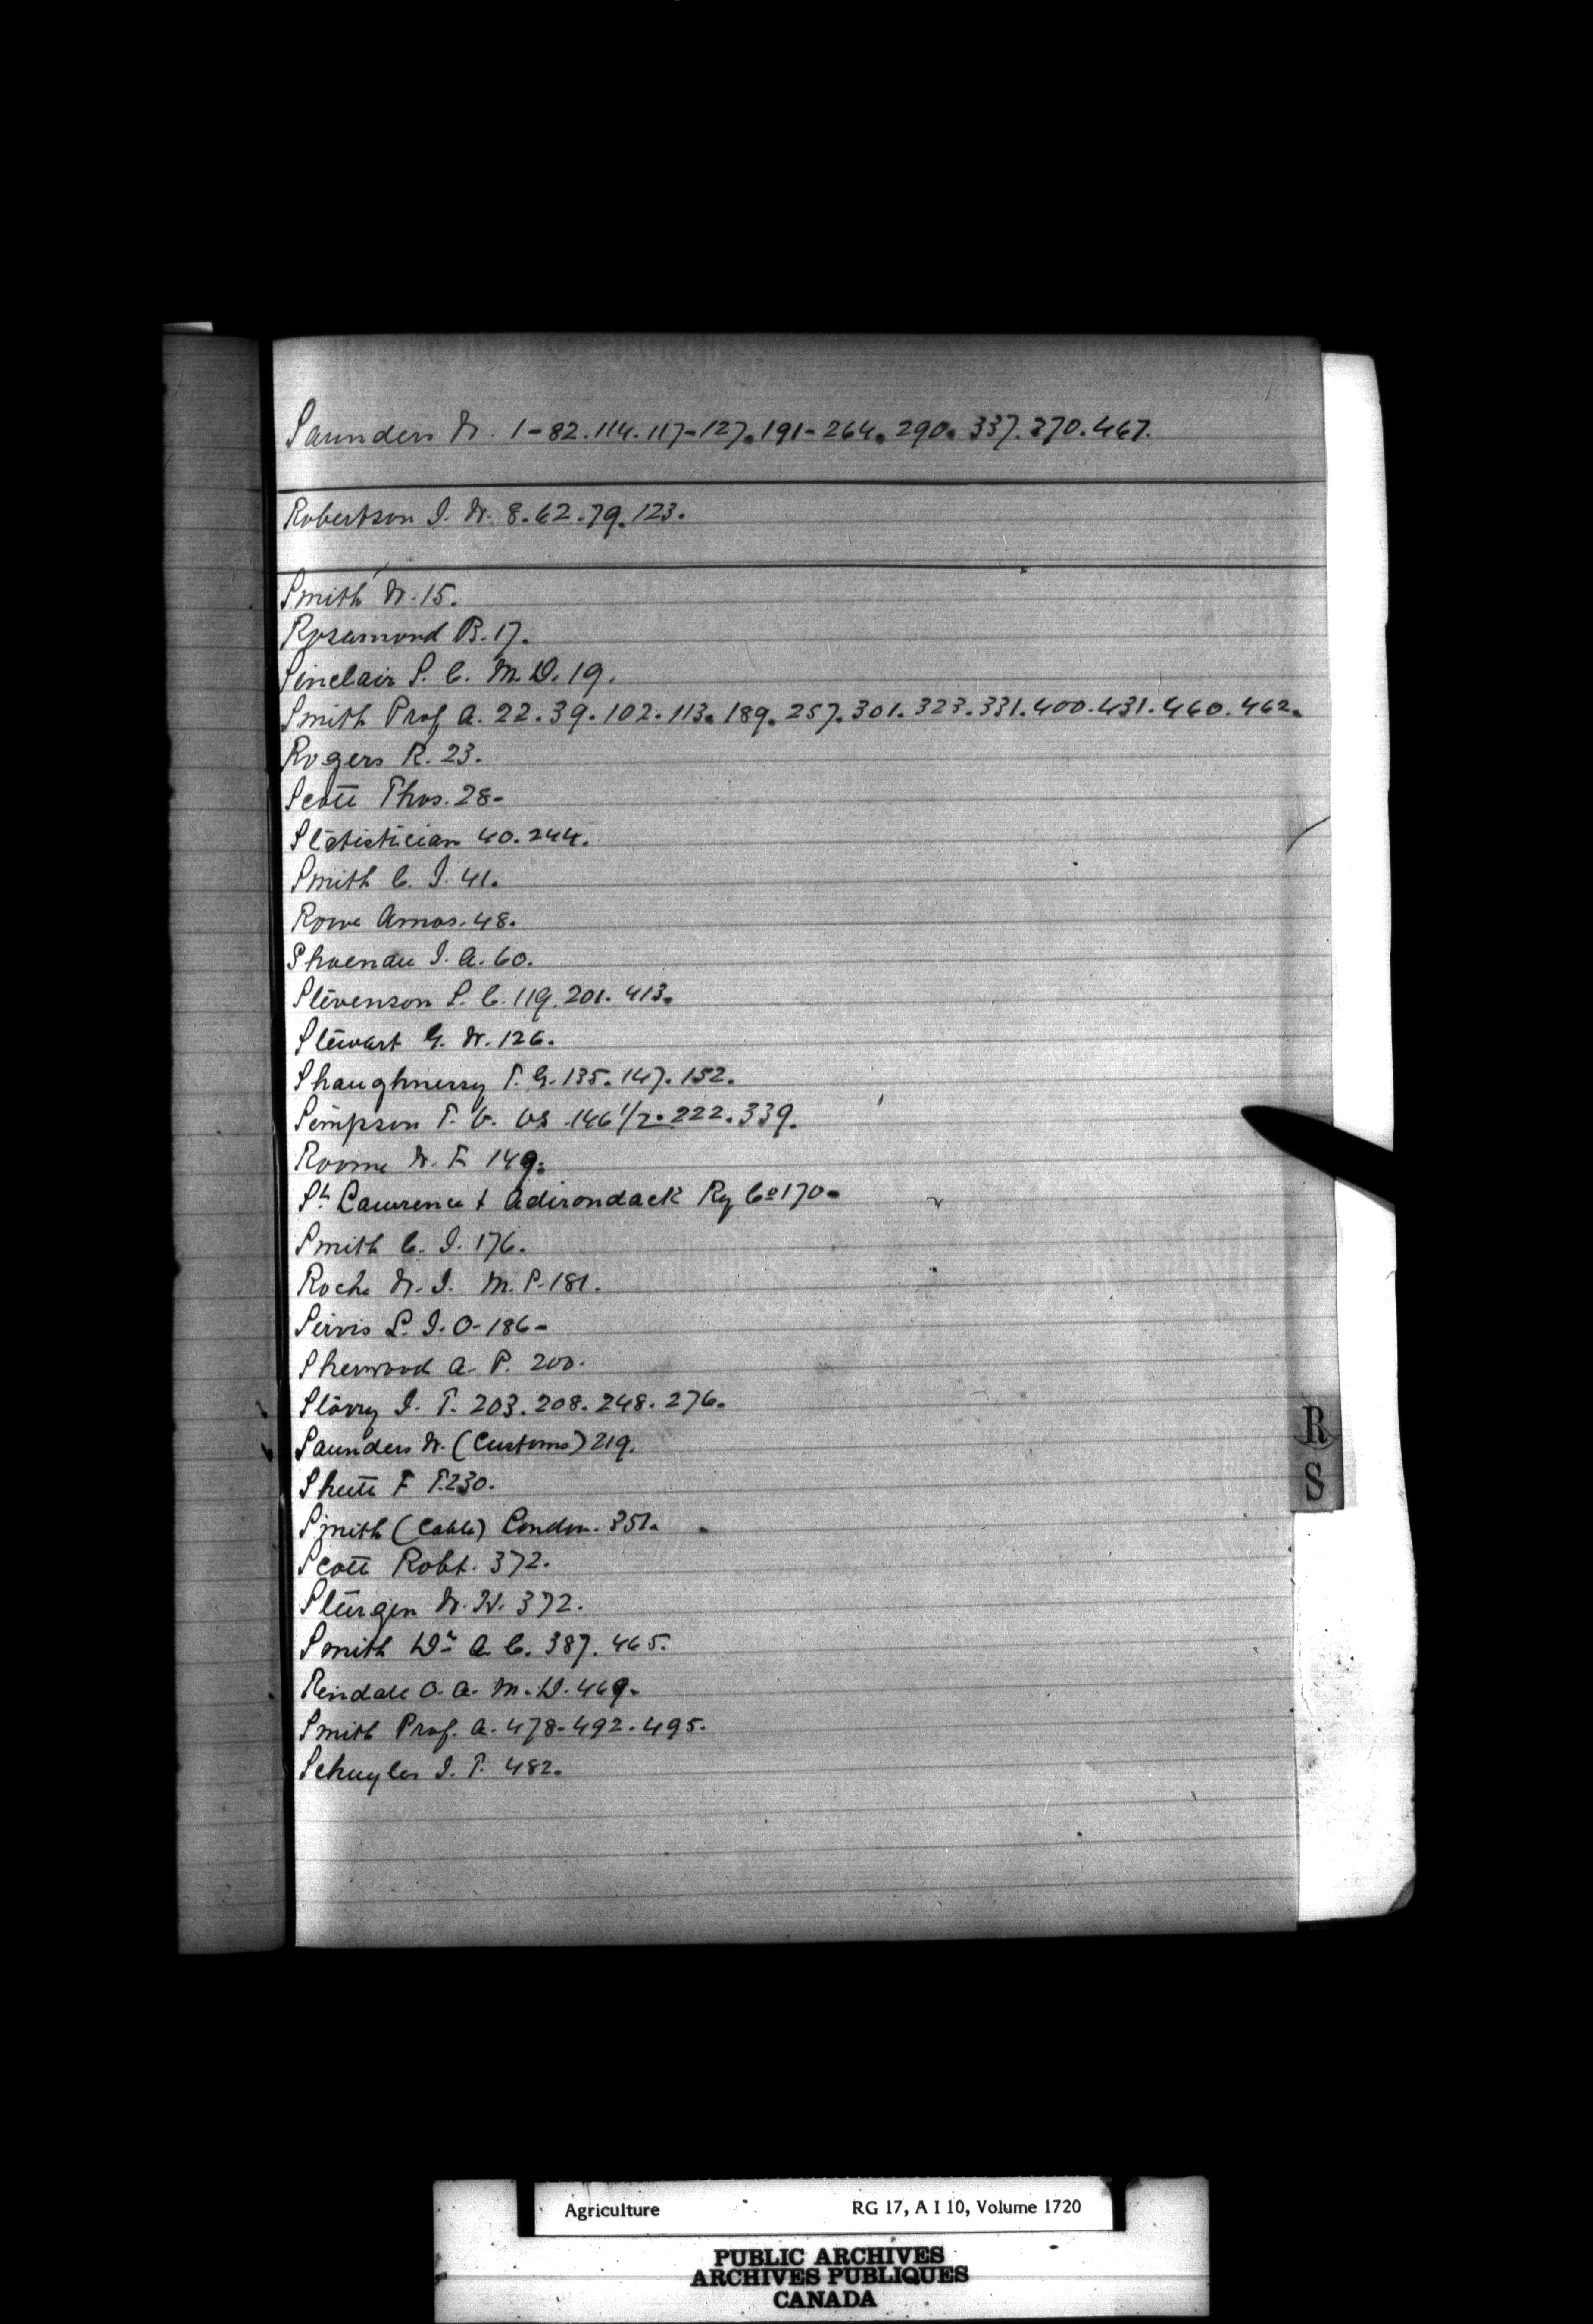 Saunders W. 1-82.114.117-127.191-264.290.337.370.467.
Robertson J. W. 8.62.79.123.
Smith W. 15.
Rosamond B. 17.
Sinclair S. C. M.D. 19.
Smith Prof A. 22.39.102.113.189.257.301.323.331.400.431.460.462.
Rogers R. 23.
Scott Thos. 28-
Statistician 40.244.
Smith C. J. 41.
Rowe Amos. 48.
Shoenau J. A. 60.
Stevenson S. C. 119.201.413.
Stewart G. W. 126.
Shaughnessy T. G. 135.147.152.
Simpson T. G. 146 1/2.222.339.
Roome W. F. 149.
St Lawrence & Adirondack Ry Co 170-
Smith C. J. 176.
Roche W. J. M.P. 181.
Sirvis L. J. O- 186-
Sherwood A. P. 200.
Storry J. T. 203.208.248.276.
Saunders W. (Customs) 219.
Shutt F T. 230.
Smith (Cable) London. 351.
Scott Robt. 372.
Sturgen W. W. 372.
Smith Dr A C. 387.465.
Rindall O. A. M.D. 469.
Smith Prof. A. 478-492-495.
Schuyler J. T. 482.
R
S
Agriculture RG 17, A I 10, Volume 1720
PUBLIC ARCHIVES
ARCHIVES PUBLIQUES
CANADA